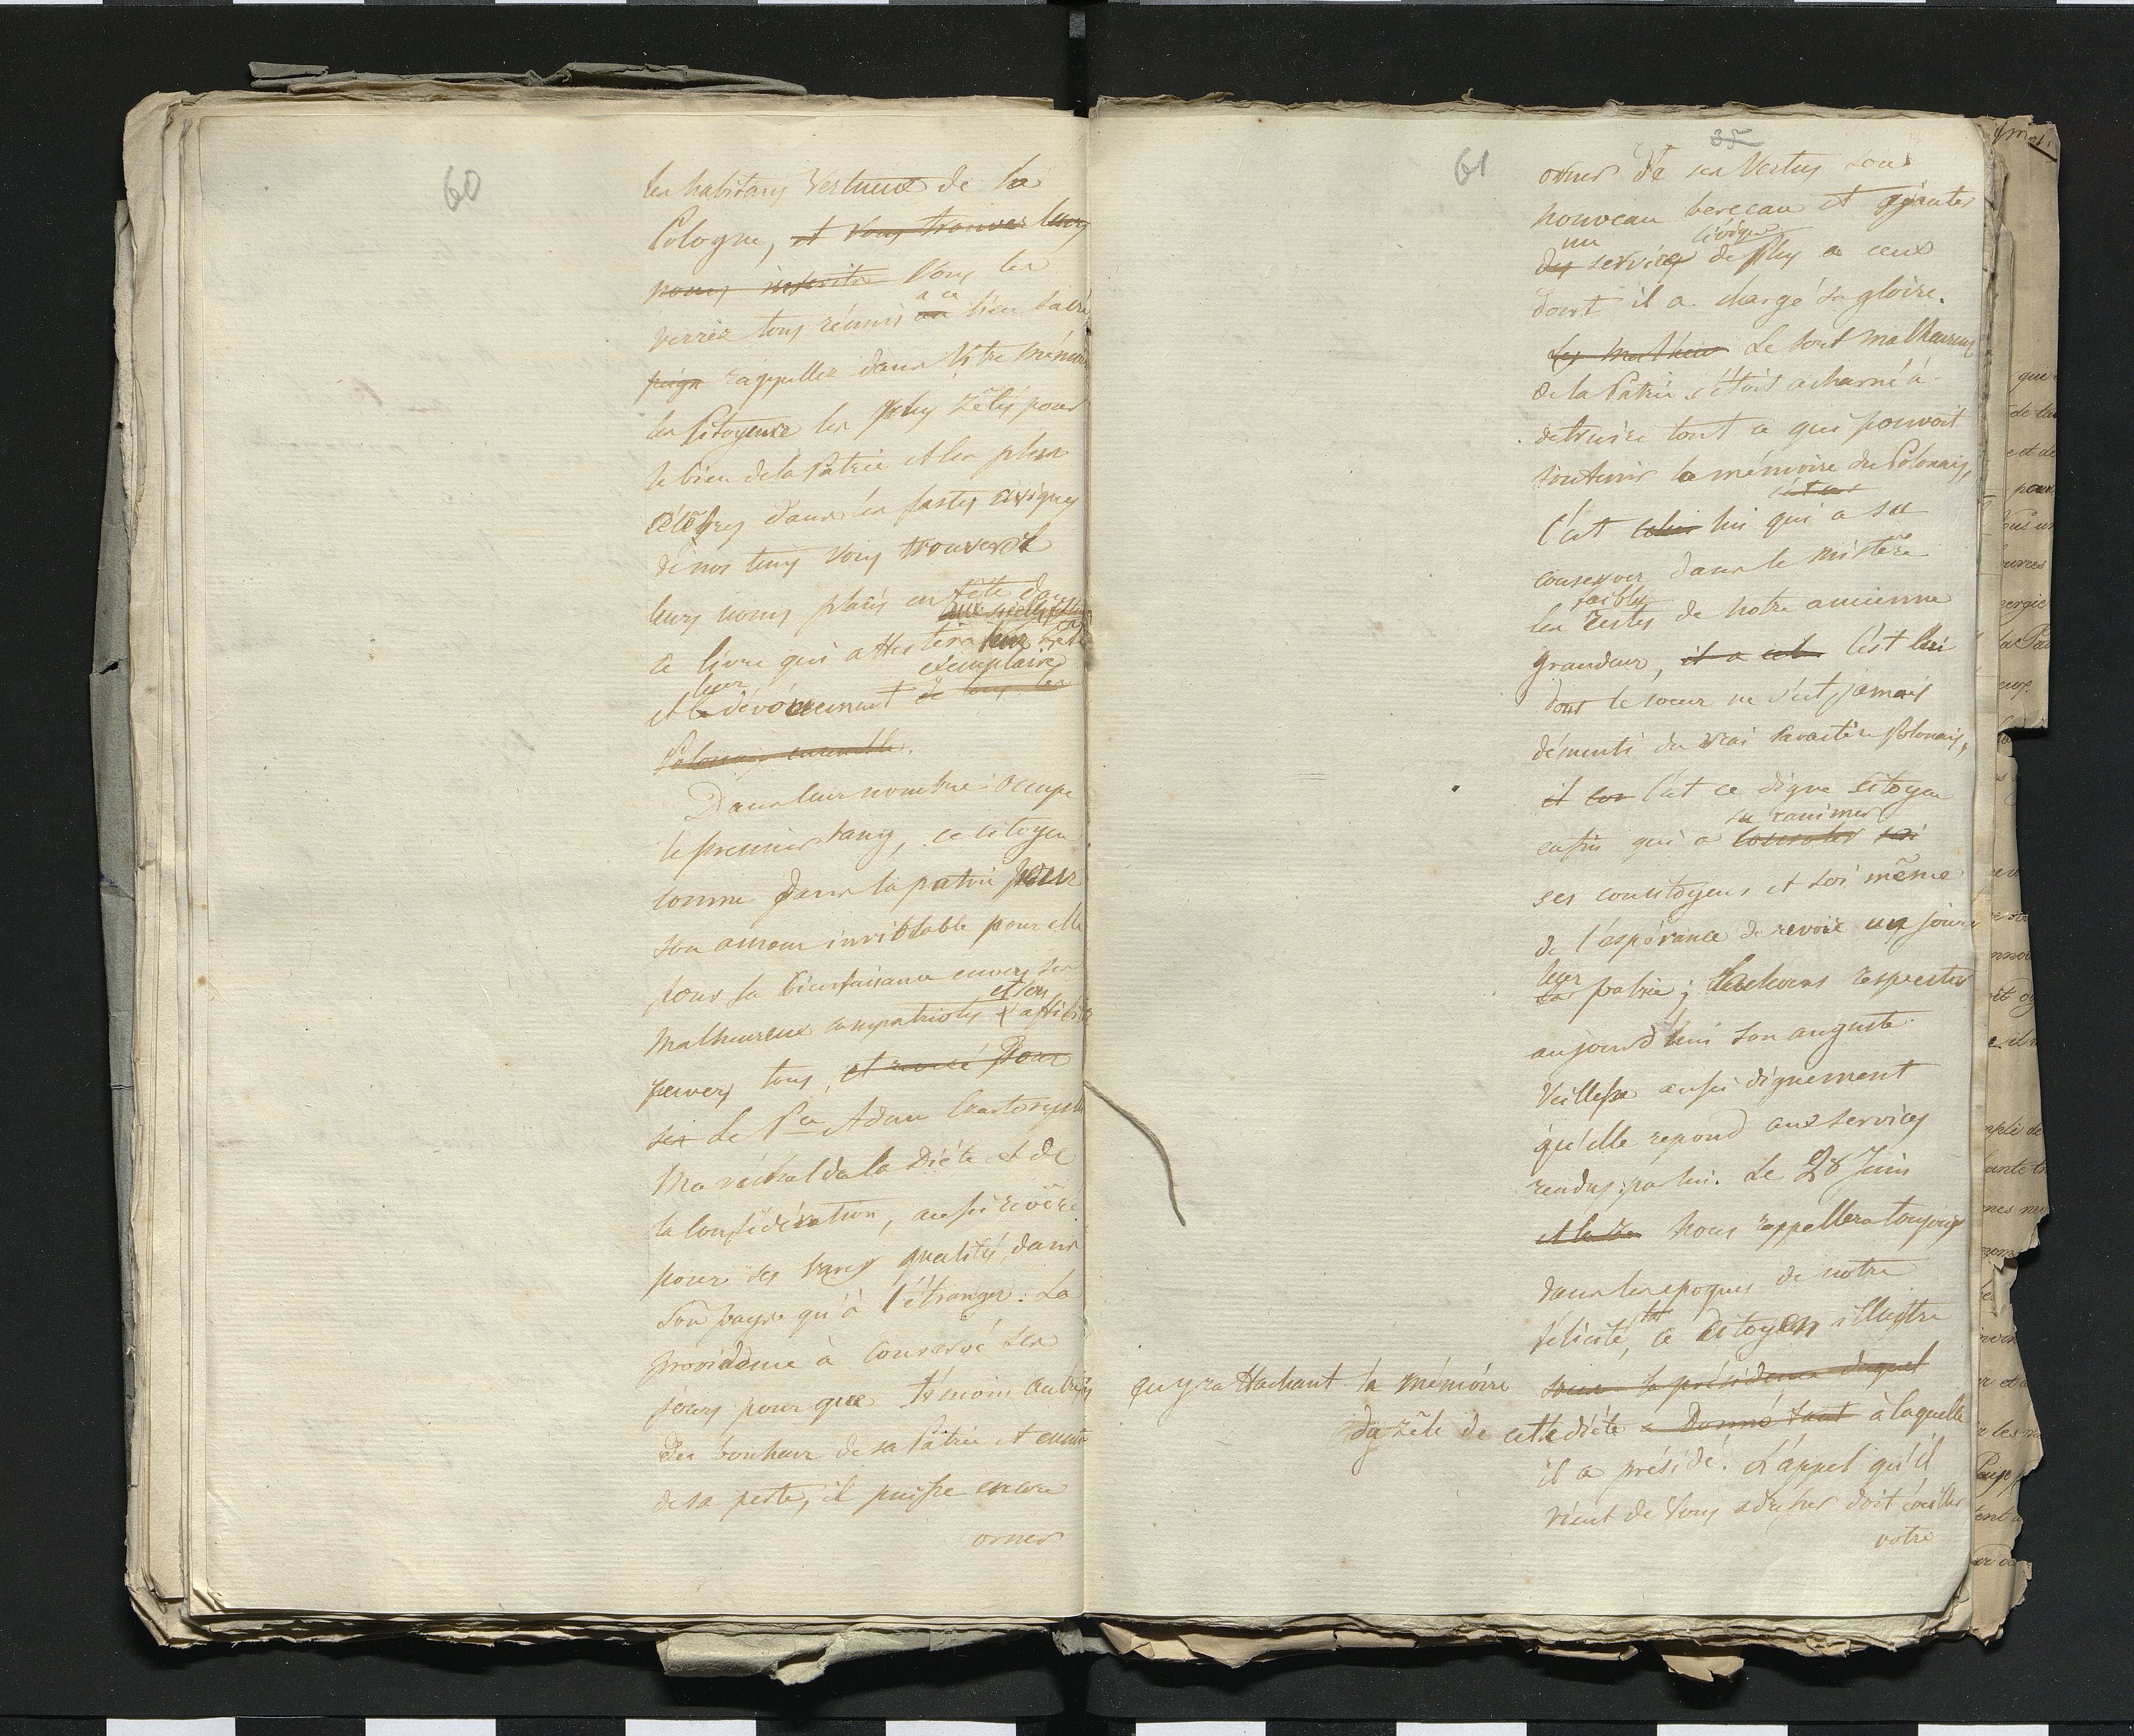 60
les habitans vertueux de la
Pologne, et vous trouvez leurs
noms inscrits Vous les
a ce
verrez tous réunis au lieu sacré
rappellez dans Votre mémoire
les Citoyens les plus zêlés pour
le bien de la Patrie et les plus
célêbres dans les fastes civiques
de nos tems vous trouverez
leurs noms placés en tête dans
ce livre qui attestera leur zêle
leur exemplaire
et le dévouement de tous les
Polonais ensemble.
Dans leur nombre occupe
le premier rang, ce citoyen
connu dans la patrie pour
son amour inviolable pour elle
pour sa bienfaisance envers ses
et son
malheureux compatriotes & affabilité
envers tous, et pour
ses Le Pce Adam Czartoryski
Maréchal de la Diète et de
la Confédération, aussi révéré
pour ses rares qualités dans
son pays qu'à l'étranger. La
providence à conservé ses
jours pour que témoin autrefois
du bonheur de sa Patrie et ensuite
de sa perte, il puisse encore
orner
35
61
orner de ses Vertus son
nouveau berceau et ajouter
un civique
des services de plus a ceux
dont il a chargé sa gloire.
Les malheurs Le sort malheureux
de la Patrie s'étoit acharné à
detruire tout ce qui pouvoit
soutenir la mémoire du Polonais,
c'est celui lui qui a su
conserver dans le mistère
faibles
les restes de notre ancienne
grandeur, il a C'est lui
dont le coeur ne s'est jamais
démenti du vrai Caractère Polonais,
il C'est ce digne citoyen
su ranimer
enfin qui a consoler soi
ses concitoyens et soi même
de l'espérance de revoir un jour
leur
patrie; Sachons respecter
aujourd'hui son auguste
Veillesse aussi dignement
qu'elle repond aux services
rendus par lui. Le 28 Juin
nous rappellera toujours
dans les epoques de notre
félicité, ce Citoyen illustre
en y rattachant la mémoire sous la présidence duquel
du zêle de cette diéte a donné tant à laquelle
il a présidé. L'appel qu'il
vient de Vous adresser doit éveiller
votre